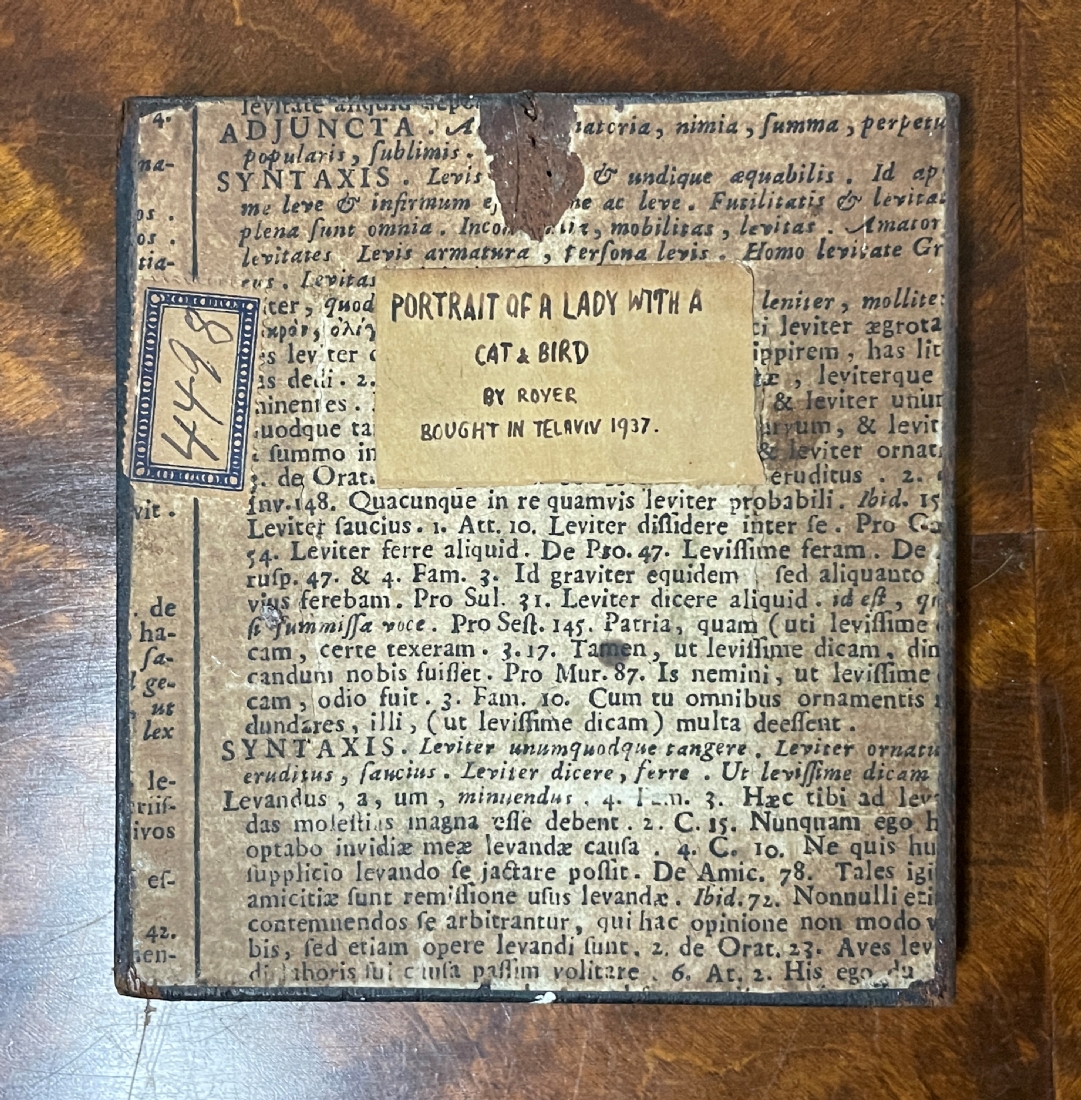 4.
ADJUNCTA. nimia, ſumma, perpetu
na-
popularis, ſublimis.
SYNTAXIS. Levis & undique æquabilis. Id ap
os.
me leve & infirmum ne ac leve. Futilitatis & levitat
os.
plena ſunt omnia. mobilitas, levitas. Amator
tia-
levitates Levis armatura, Perſona levis. Homo levitate Gr
Levitas
iter, quod leniter, mollite
ci leviter ægrota
ippirem, has lit
as dedi. 2. leviterque
minentes. & leviter unum
uodque ta & levit
ſummo in & leviter ornat
de Orat. eruditus. 2.
4498
PORTRAIT OF A LADY WITH A
CAT & BIRD
BY ROYER
BOUGHT IN TELAVIV 1937.
Inv. 148. Quacunque in re quamvis leviter probabili. Ibid. 15
vit.
Leviter ſaucius. 1. Att. 10. Leviter diſſidere inter ſe. Pro
54. Leviter ferre aliquid. De Pro. 47. Leviſſime feram. De
ruſp. 47. & 4. Fam. 3. Id graviter equidem ſed aliquanto
de
vius ferebam. Pro Sul. 31. Leviter dicere aliquid. id eſt,
ha-
ſi ſummiſſa voce. Pro Seſt. 145. Patria, quam (uti leviſſime
ſa-
cam, certe texeram. 3. 17. Tamen, ut leviſſime dicam, din
ge-
candum nobis fuiſſet. Pro Mur. 87. Is nemini, ut leviſſime
ut
cam, odio fuit. 3. Fam. 10. Cum tu omnibus ornamentis
lex
dundares, illi, (ut leviſſime dicam) multa deeſſent.
SYNTAXIS. Leviter unumquodque tangere. Leviter ornatu
le-
eruditus, ſaucius. Leviter dicere, ferre. Ut leviſſime dicam
riiſ-
Levandus, a, um, minuendus. 4. Fam. 3. Hæc tibi ad lev
ivos
das moleſtias magna eſſe debent. 2. C. 15. Nunquam ego h
optabo invidiæ meæ levandæ cauſa. 4. C. 10. Ne quis hu
eſ-
ſupplicio levando ſe jactare poſſit. De Amic. 78. Tales igi
amicitiæ ſunt remiſſione uſus levandæ. Ibid. 72. Nonnulli eti
contemnendos ſe arbitrantur, qui hac opinione non modo v
42.
bis, ſed etiam opere levandi ſunt. 2. de Orat. 23. Aves lev
paſſim volitare. 6. At. 2. His ego